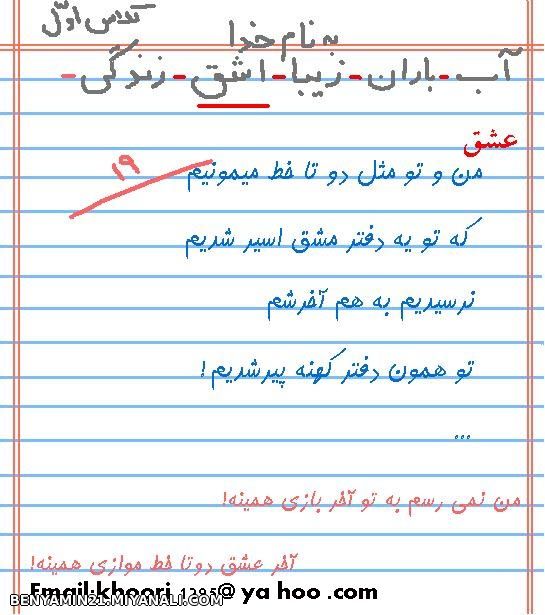 کلاس اوّل
به نام خدا
آب - باران - زیبا - اشق - زندگی -
عشق
۱۹
من و تو مثل دو تا خط میمونیم
که تو یه دفتر مشق اسیر شدیم
نرسیدیم به هم آخرشم
تو همون دفتر کهنه پیرشدیم!
...
من نمی رسم به تو آخر بازی همینه!
آخر عشق دوتا خط موازی همینه!
Email:khoori_1385@ya hoo .com
BENYAMIN21.MIYANALI.COM